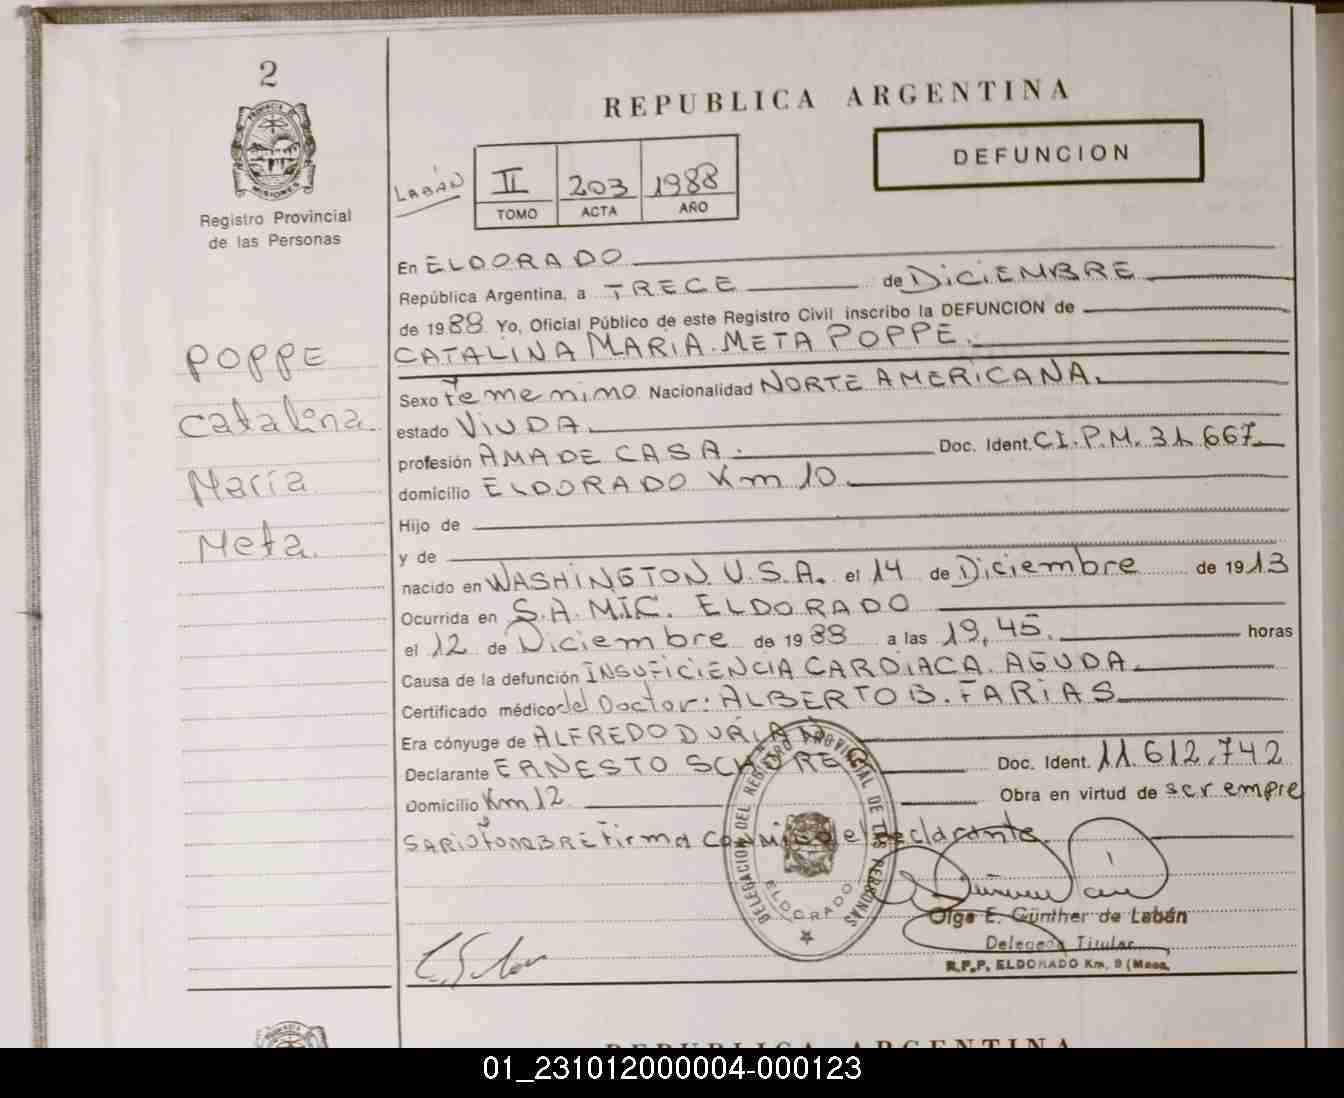 2
PROVINCIA
MISIONES
Registro Provincial
de las Personas
POPPE
Catalina
María
Meta.
REPUBLICA ARGENTINA
DEFUNCION
LABÁN
II 203 1988
TOMO ACTA AÑO
En ELDORADO
República Argentina, a TRECE de DICIEMBRE
de 1988 Yo, Oficial Público de este Registro Civil inscribo la DEFUNCION de
CATALINA MARIA META POPPE.
Sexo Femenino Nacionalidad NORTE AMERICANA.
estado VIUDA.
profesión AMA DE CASA. Doc. Ident. C.I.P.M. 31.667
domicilio ELDORADO Km 10.
Hijo de
y de
nacido en WASHINGTON U.S.A. el 14 de Diciembre de 1913
Ocurrida en S.A.M.I.C. ELDORADO
el 12 de Diciembre de 1988 a las 19,45. horas
Causa de la defunción INSUFICIENCIA CARDIACA AGUDA.
Certificado médico del Doctor: ALBERTO B. FARIAS
Era cónyuge de ALFREDO DURIAN
Declarante ERNESTO Doc. Ident. 11.612.742
Domicilio Km 12 Obra en virtud de ser empre
SARIO FUNEBRE Firma conmigo el declarante
DELEGACION DEL REGISTRO PROVINCIAL DE LAS PERSONAS
ELDORADO
Olga E. Günther de Labán
Delegada Titular
R.P.P. ELDORADO Km. 9 (Mnes.
REPUBLICA ARGENTINA
01_231012000004-000123